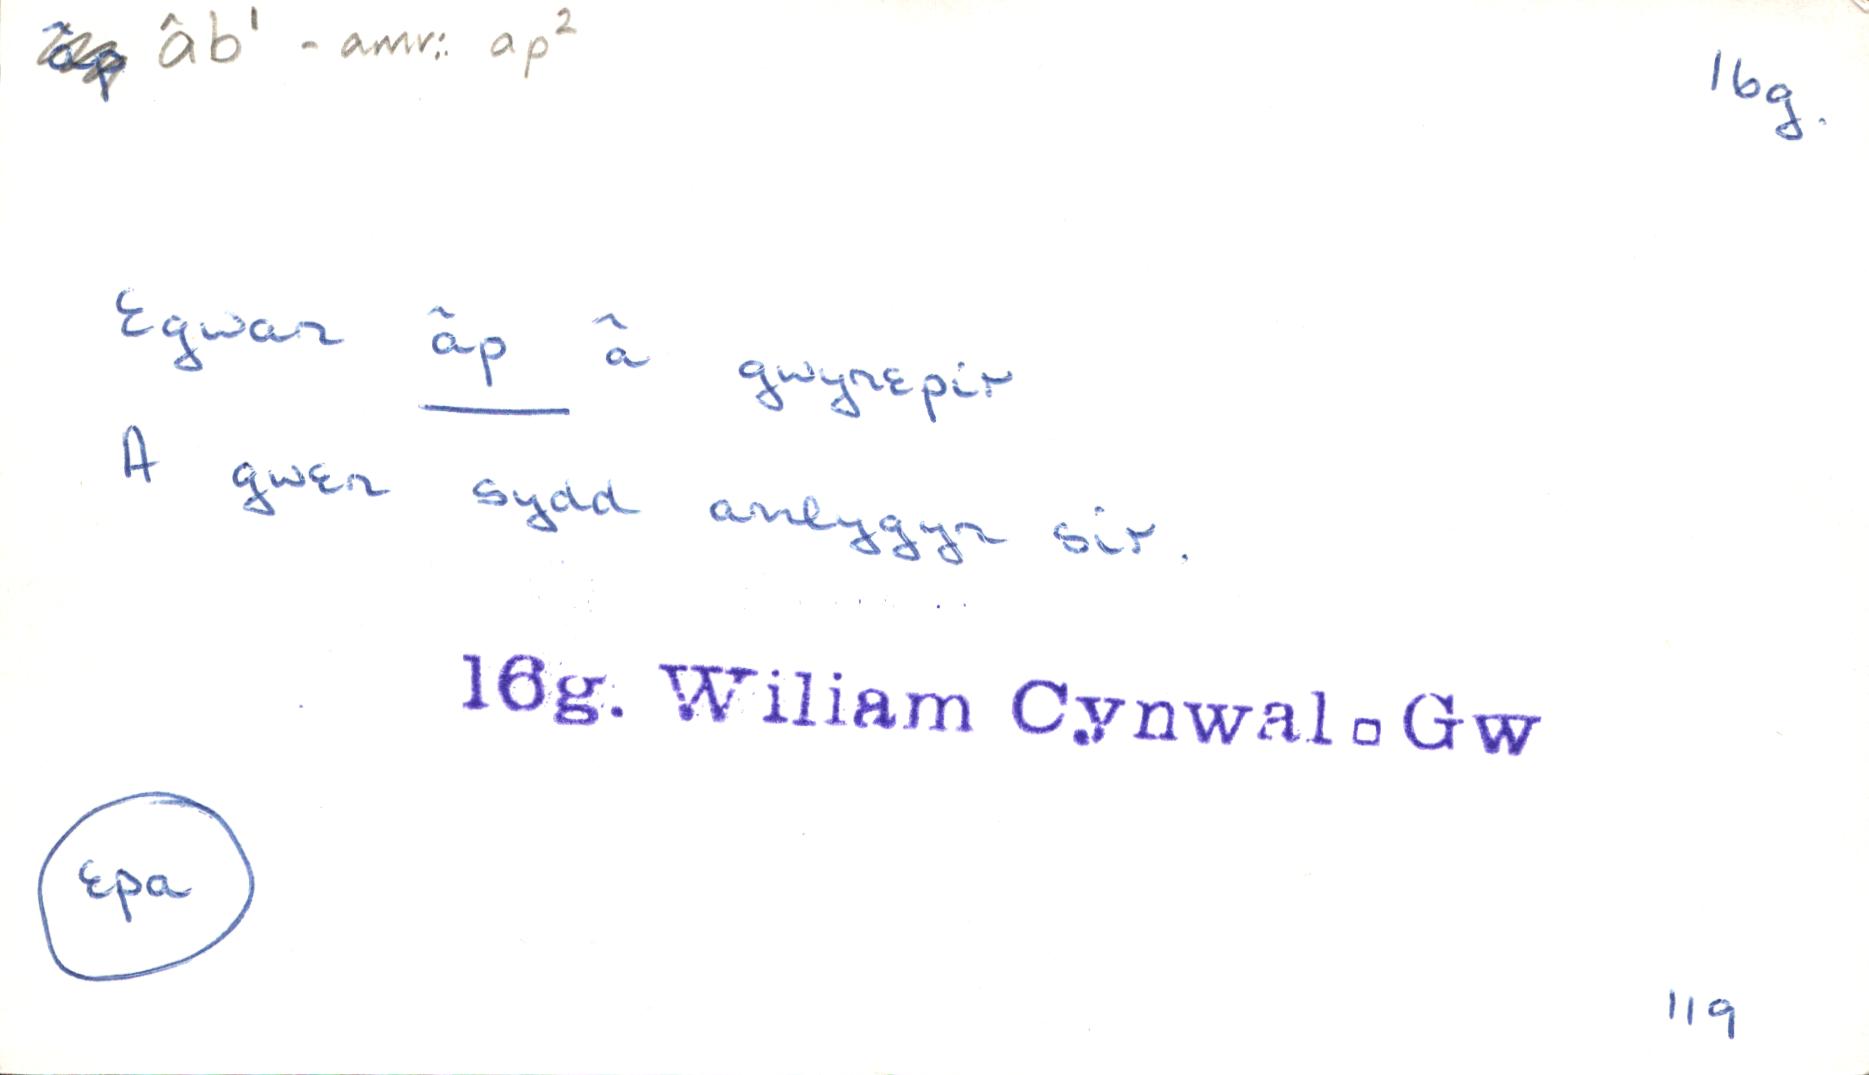 âb¹ - amr: ap²
16g.
Egwan âp â gwynepir
A gwen sydd anlygyn sir.
16g. Wiliam Cynwal▫Gw
epa
119